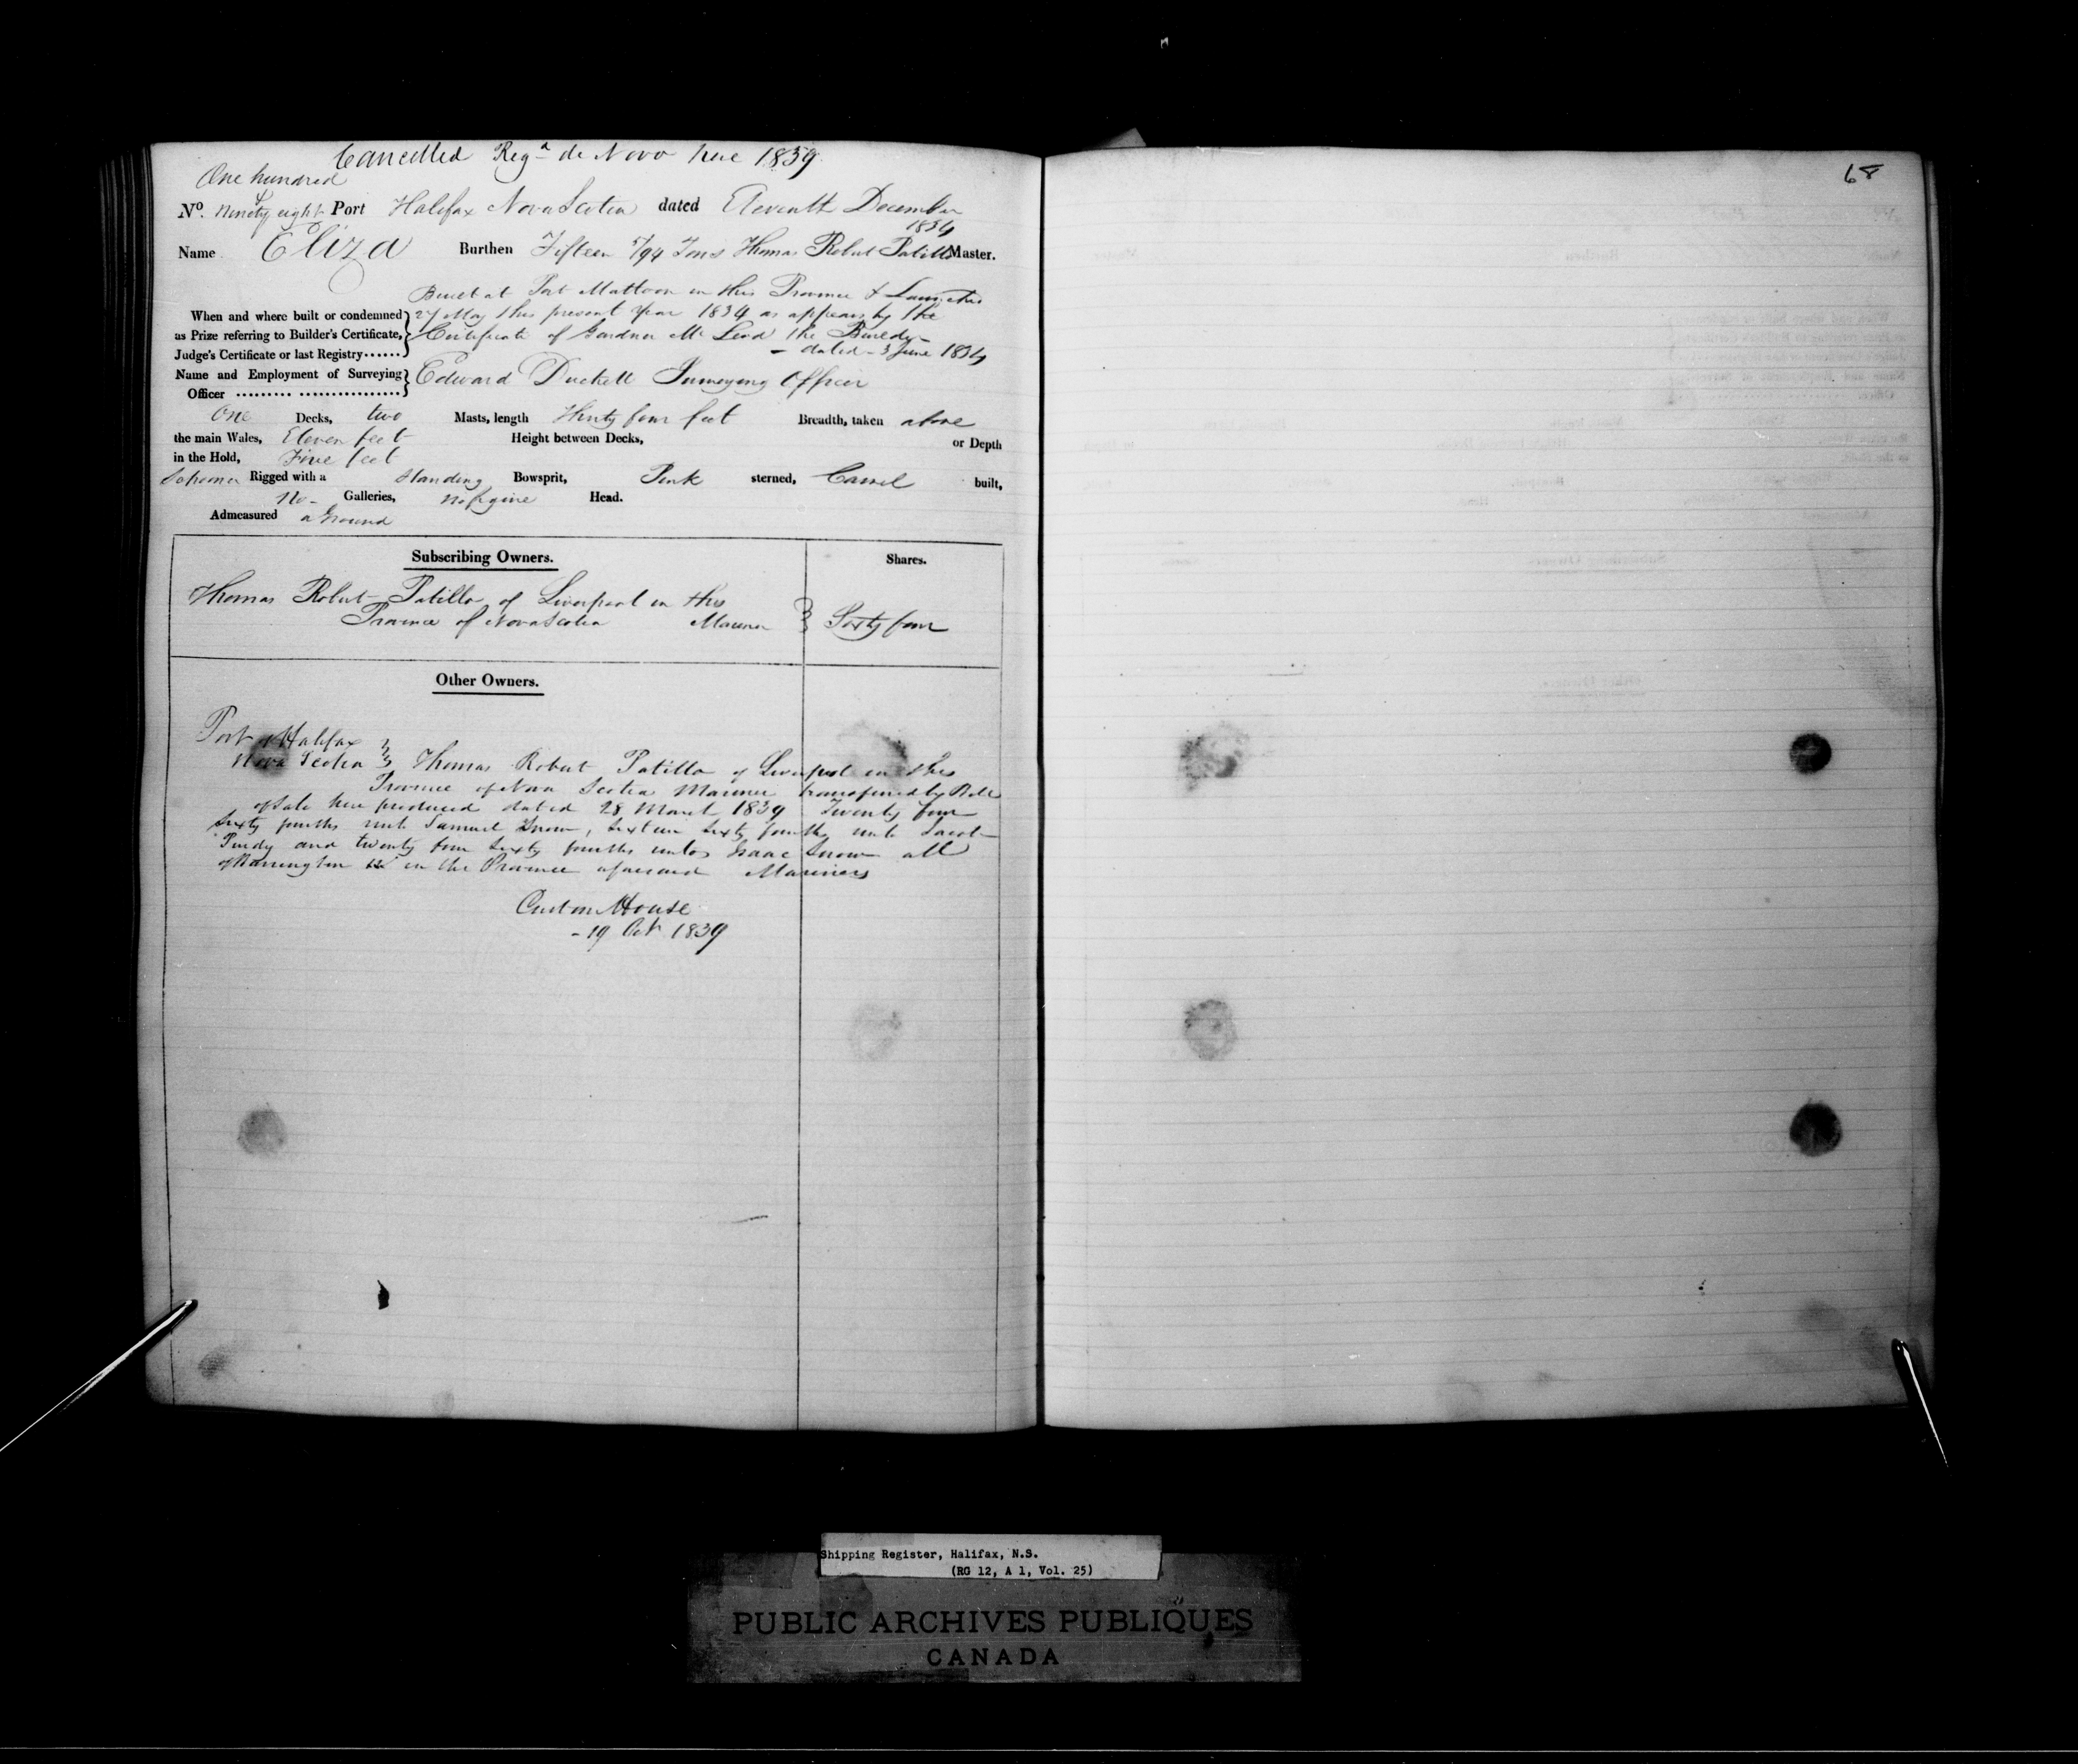 Cancelled Regd de Novo here 1839
One hundred
No. Ninety eight Port Halifax Nova Scotia dated Eleventh December
1834
Name Eliza Burthen Fifteen 5/94 Tons Thomas Robert Patillo Master.
Built at Port Mattoon in this Province & Launched
When and where built or condemned 27 May this present Year 1834 as appears by the
as Prize referring to Builder's Certificate, Certificate of Gardner Mc Leod the Builder
Judge's Certificate or last Registry...... dated 3 June 1834
Name and Employment of Surveying Edward Duckett Surveying Officer
Officer ......... .................
One Decks, two Masts, length Thirty four feet Breadth, taken above
the main Wales, Eleven feet Height between Decks, or Depth
in the Hold, Five feet
Schooner Rigged with a Standing Bowsprit, Pink sterned, Carvel built,
No Galleries, no figure Head.
Admeasured aground
Subscribing Owners. Shares.
Thomas Robert Patillo of Liverpool in this
Province of Nova Scotia Mariner Sixty four
Other Owners.
Port of Halifax
Nova Scotia Thomas Robert Patillo of Liverpool in this
Province of Nova Scotia Mariner transferred by Bill
of Sale here produced dated 28 March 1839 Twenty four
sixty fourths unto Samuel Snow, sixteen sixty fourths unto Jacob
Purdy and twenty four sixty fourths unto Isaac Snow all
of Barrington in the Province aforesaid Mariners
Custom House
- 19 Oct 1839
68
Shipping Register, Halifax, N.S.
(RG 12, A 1, Vol. 25)
PUBLIC ARCHIVES PUBLIQUES
CANADA